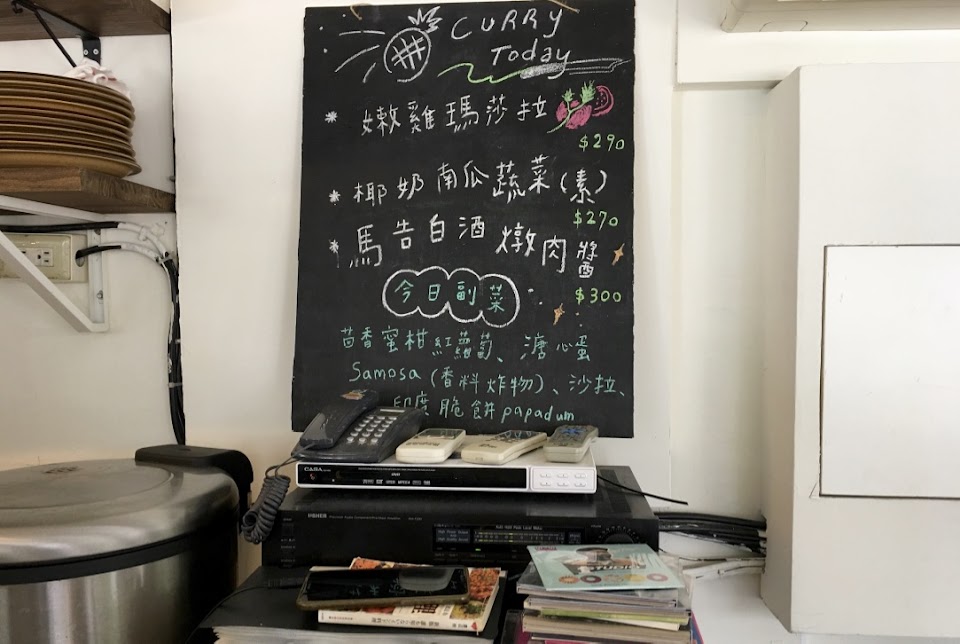 CURRY
Today
* 嫩雞瑪莎拉
$290
* 椰奶南瓜蔬菜(素)
$270
* 馬告白酒燉肉醬
$300
今日副菜
茴香蜜柑紅蘿蔔、溏心蛋
Samosa (香料炸物)、沙拉、
印度脆餅papadum
CASA
FISHER